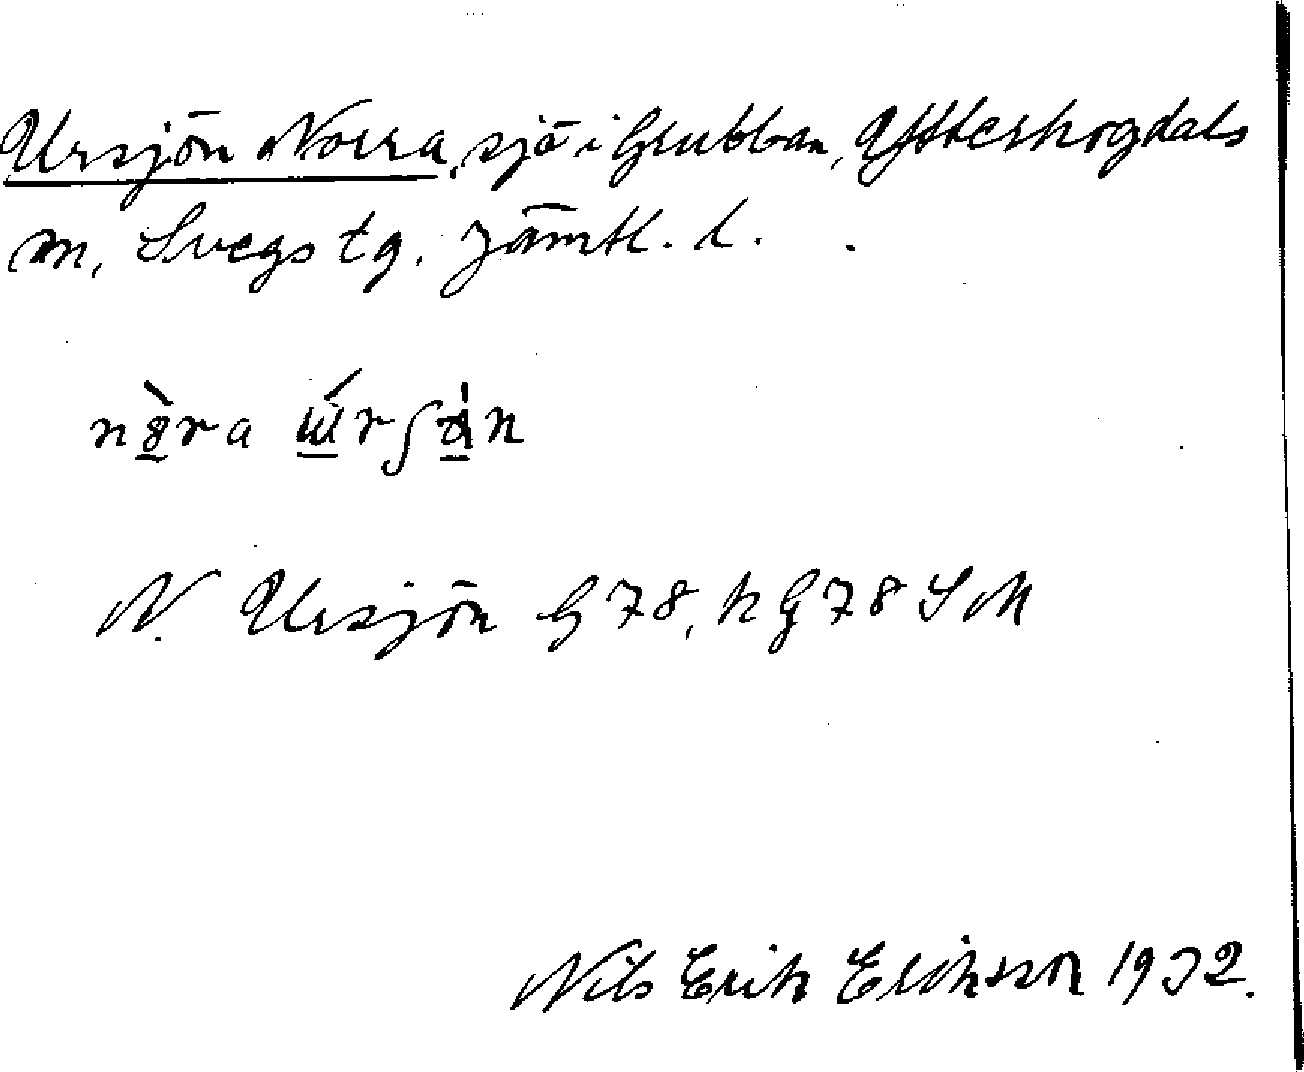 Ursjön Norra, sjö i Grubban, Ytterhogdals
sn, Svegs tg. Jämtl. l.
nòra úrʃön
N. Ursjön G 78, k G 78 S M
Nils Erik Eriksson 1932.